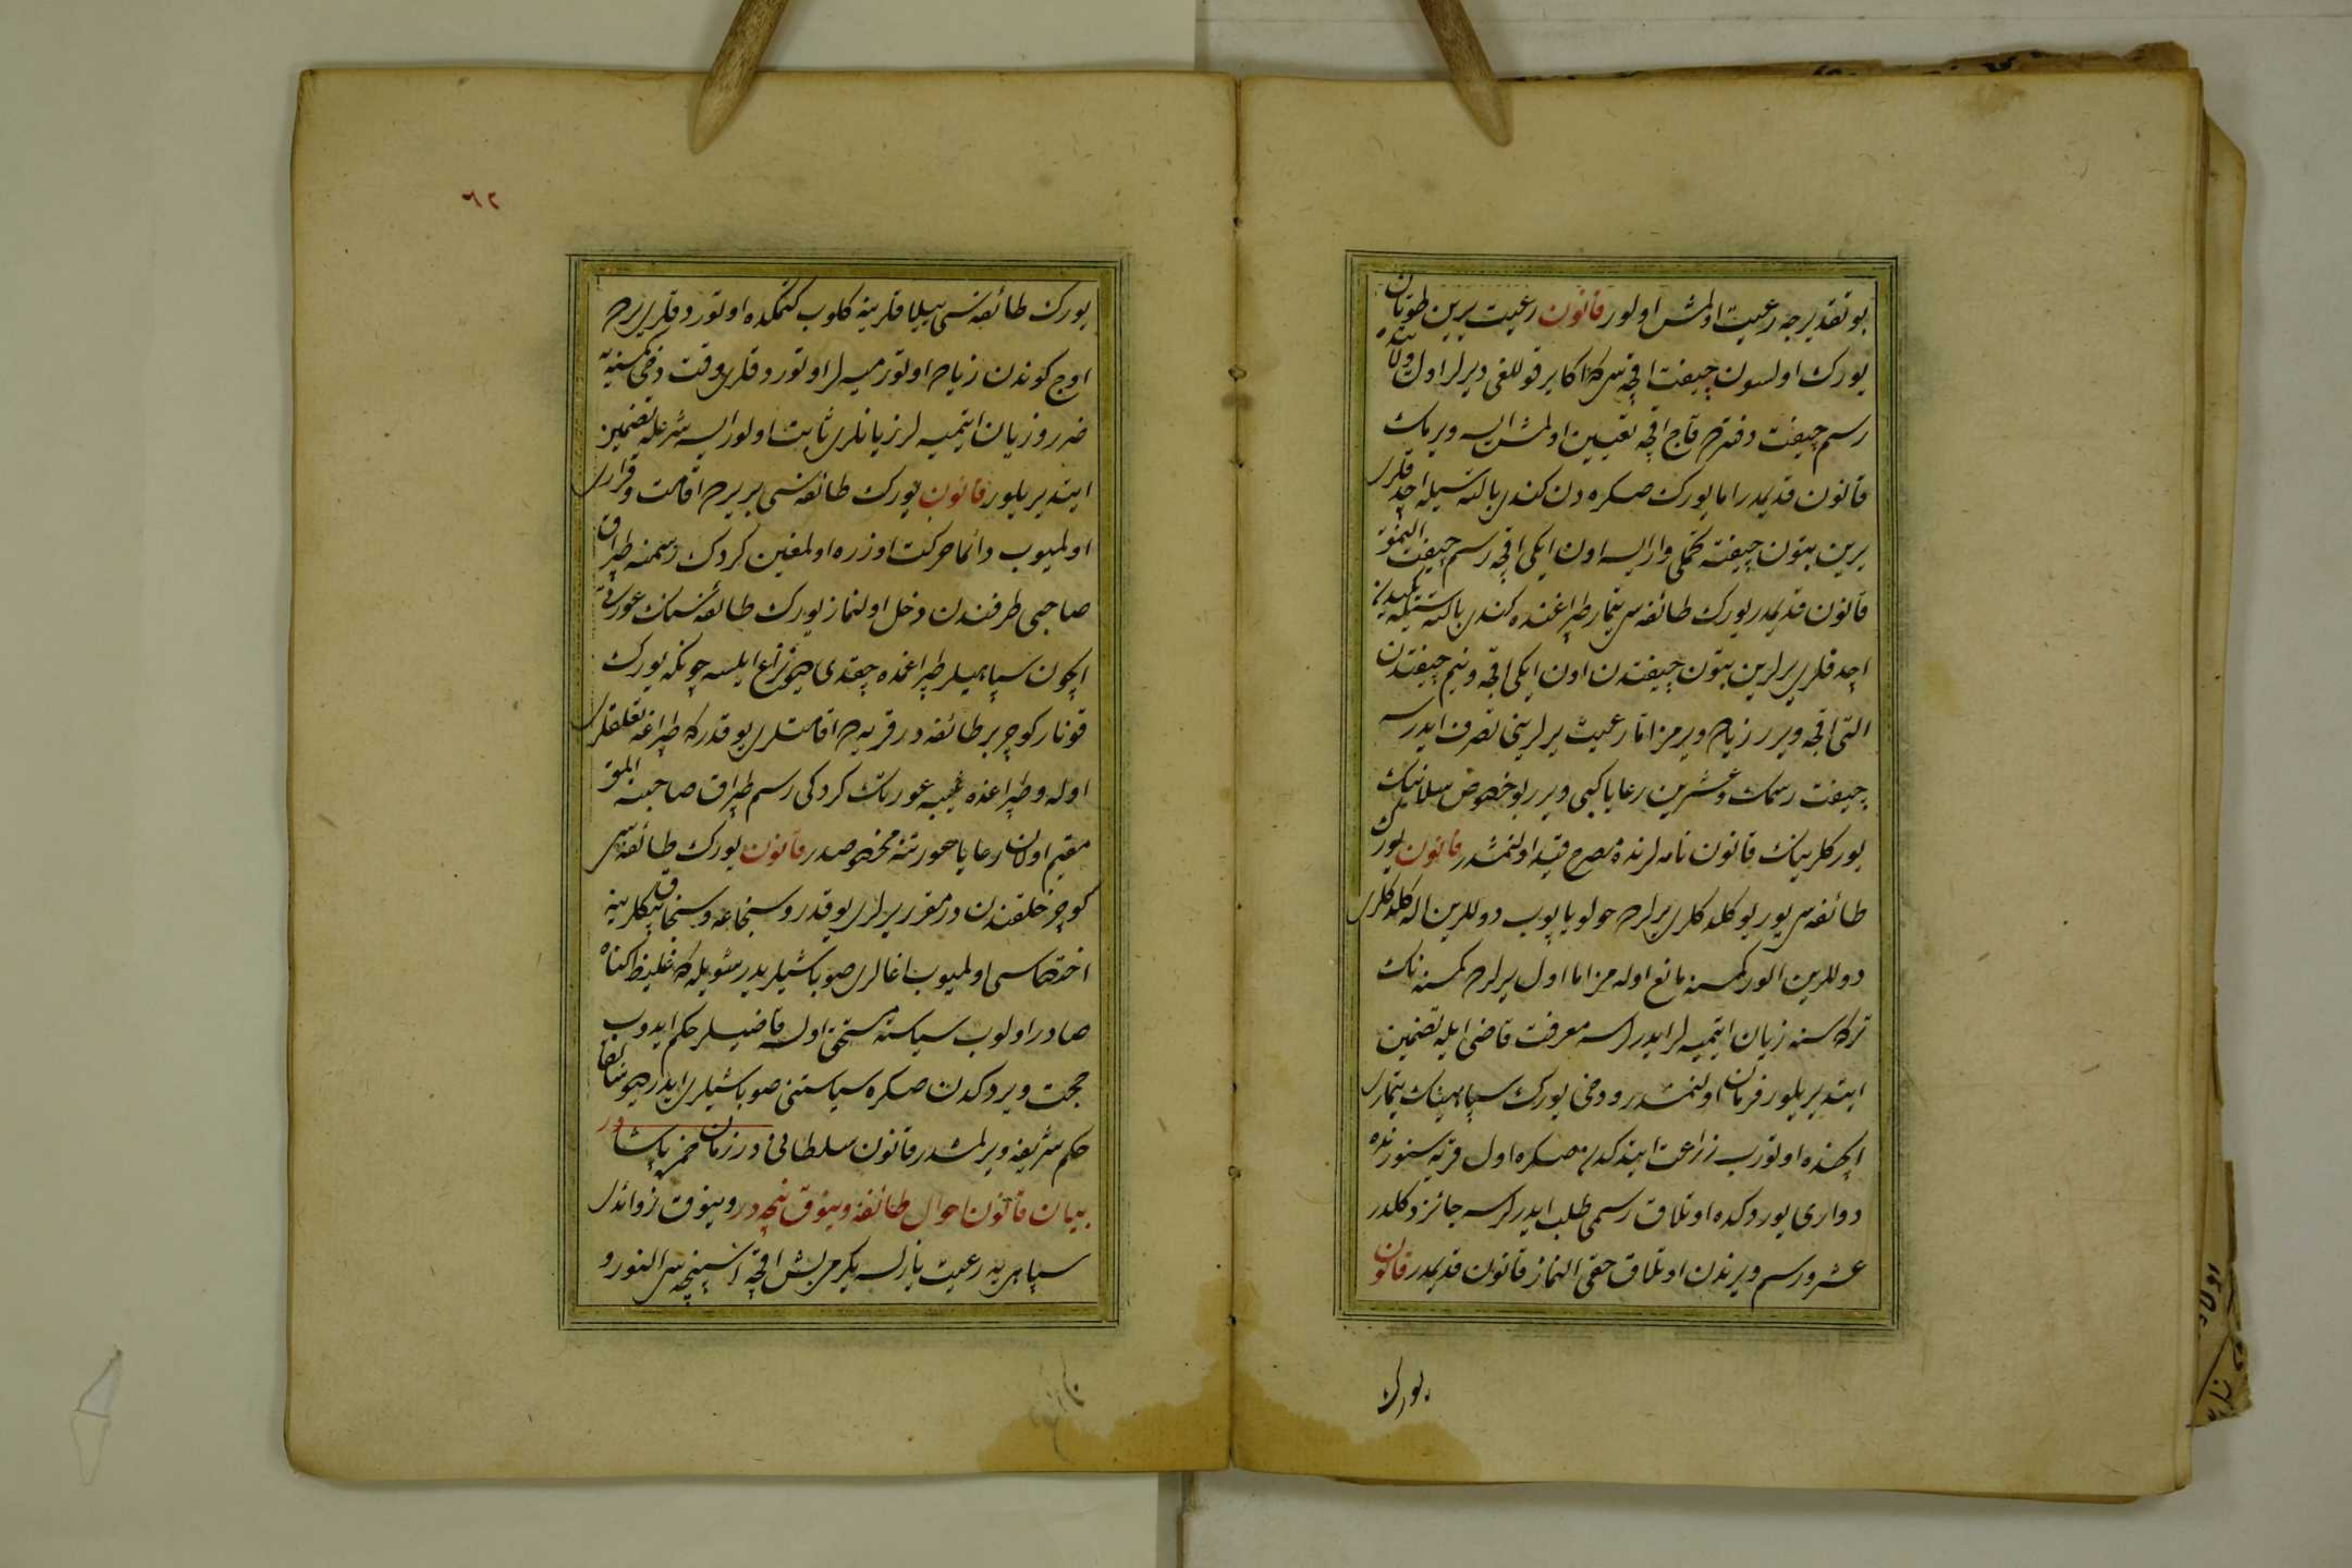 بو تقدیرجه رعیت اولمش اولور قانون رعیت یرین طوتان
یورك اولسون چیفت اقچه سی که اکا بر قوللغی دیرلر اول ولایتده
رسم چیفت دفترده قاچ اقچه تعیین اولمش ایسه ویرمك
قانون قدیمدر اما یورك صکره دن کندی بالته سیله اچدقلری
یرین بتون چیفته تحملی وار ایسه اون ایکی اقچه رسم چیفت النمق
قانون قدیمدر یورك طائفه سی تیمار طپراغنده کندی بالته سیله یکیدن
اچدقلری یرلرین بتون چیفتدن اون ایکی اقچه و نیم چیفتدن
التی اقچه ویرر زیاده ویرمز اما رعیت یرلرینی تصرف ایدرسه
چیفت رسمك و عشرین رعایا کبی ویرر بو خصوص سلانیك
یورکلرینك قانون نامه لرنده مصرح قید اولنمشدر قانون یورك
طائفه سی یوریو کلدکلری یرلرده حولو یاپوب دوللرین اله کلدکلری
دوللرین الور کمسنه مانع اوله مز اما اول یرلرده کمسنه نك
ترکه سنه زیان ایتمیه لر ایدرلرسه معرفت قاضی ایله تضمین
ایتدیریلور فرمان اولنمشدر و دخی یورك سپاهینك تیماری
ایچنده اوتورب زراعت ایتدکدن صکره اول قریه سنورنده
دواری یوردکده اوتلاق رسمی طلب ایدرلرسه جائز دکلدر
عشر و رسم ویرندن اوتلاق حقی النماز قانون قدیمدر قانون
یورك
٦٢
یورك طائفه سی ییلاقلرینه کلوب کتمکده اوتوردقلری یرده
اوچ کوندن زیاده اوتورمیه لر اوتوردقلری وقت دخی کمسنیه
ضرر و زیان ایتمیه لر زیانلری ثابت اولور ایسه شرعله تضمین
ایتدیریلور قانون یورك طائفه سی بر یرده اقامت و قراری
اولمیوب دائما حرکت اوزره اولمغین کردك رسمنه طپراق
صاحبی طرفندن دخل اولنماز یورك طائفه سنك عورتی
ایچون سپاهیلر طپراغمده چقدی دیو نزاع ایلسه چونکه یورك
قونار کوچر بر طائفه در قریه ده اقامتلری یوقدر که طپراغه تعلقلری
اوله و طپراغنده ثیبه عورتك کردکی رسم طپراق صاحبنه المق
مقیم اولان رعایا عورتنه مخصوصدر قانون یورك طائفه سی
کوچر خلقندن در مقرر یرلری یوقدر و سنجاغه و سنجاق بکلرینه
اختصاصی اولمیوب اغالری صوباشیلریدر شویله که غلیظ کناه
صادر اولوب سیاسته مستحق اولسه قاضیلر حکم ایدوب
حجت ویردکدن صکره سیاستنی صوباشیلری ایدر دیو سابقا
حکم شریف ویرلمشدر قانون سلطانی در زمان خضر پاشا در
بیان قانون احوال طائفه ویینوق نیجه در ویینوق زوائدی
سپاهی یه رعیت یازلسه یکرمی بش اقچه اسپنجه سی النور و